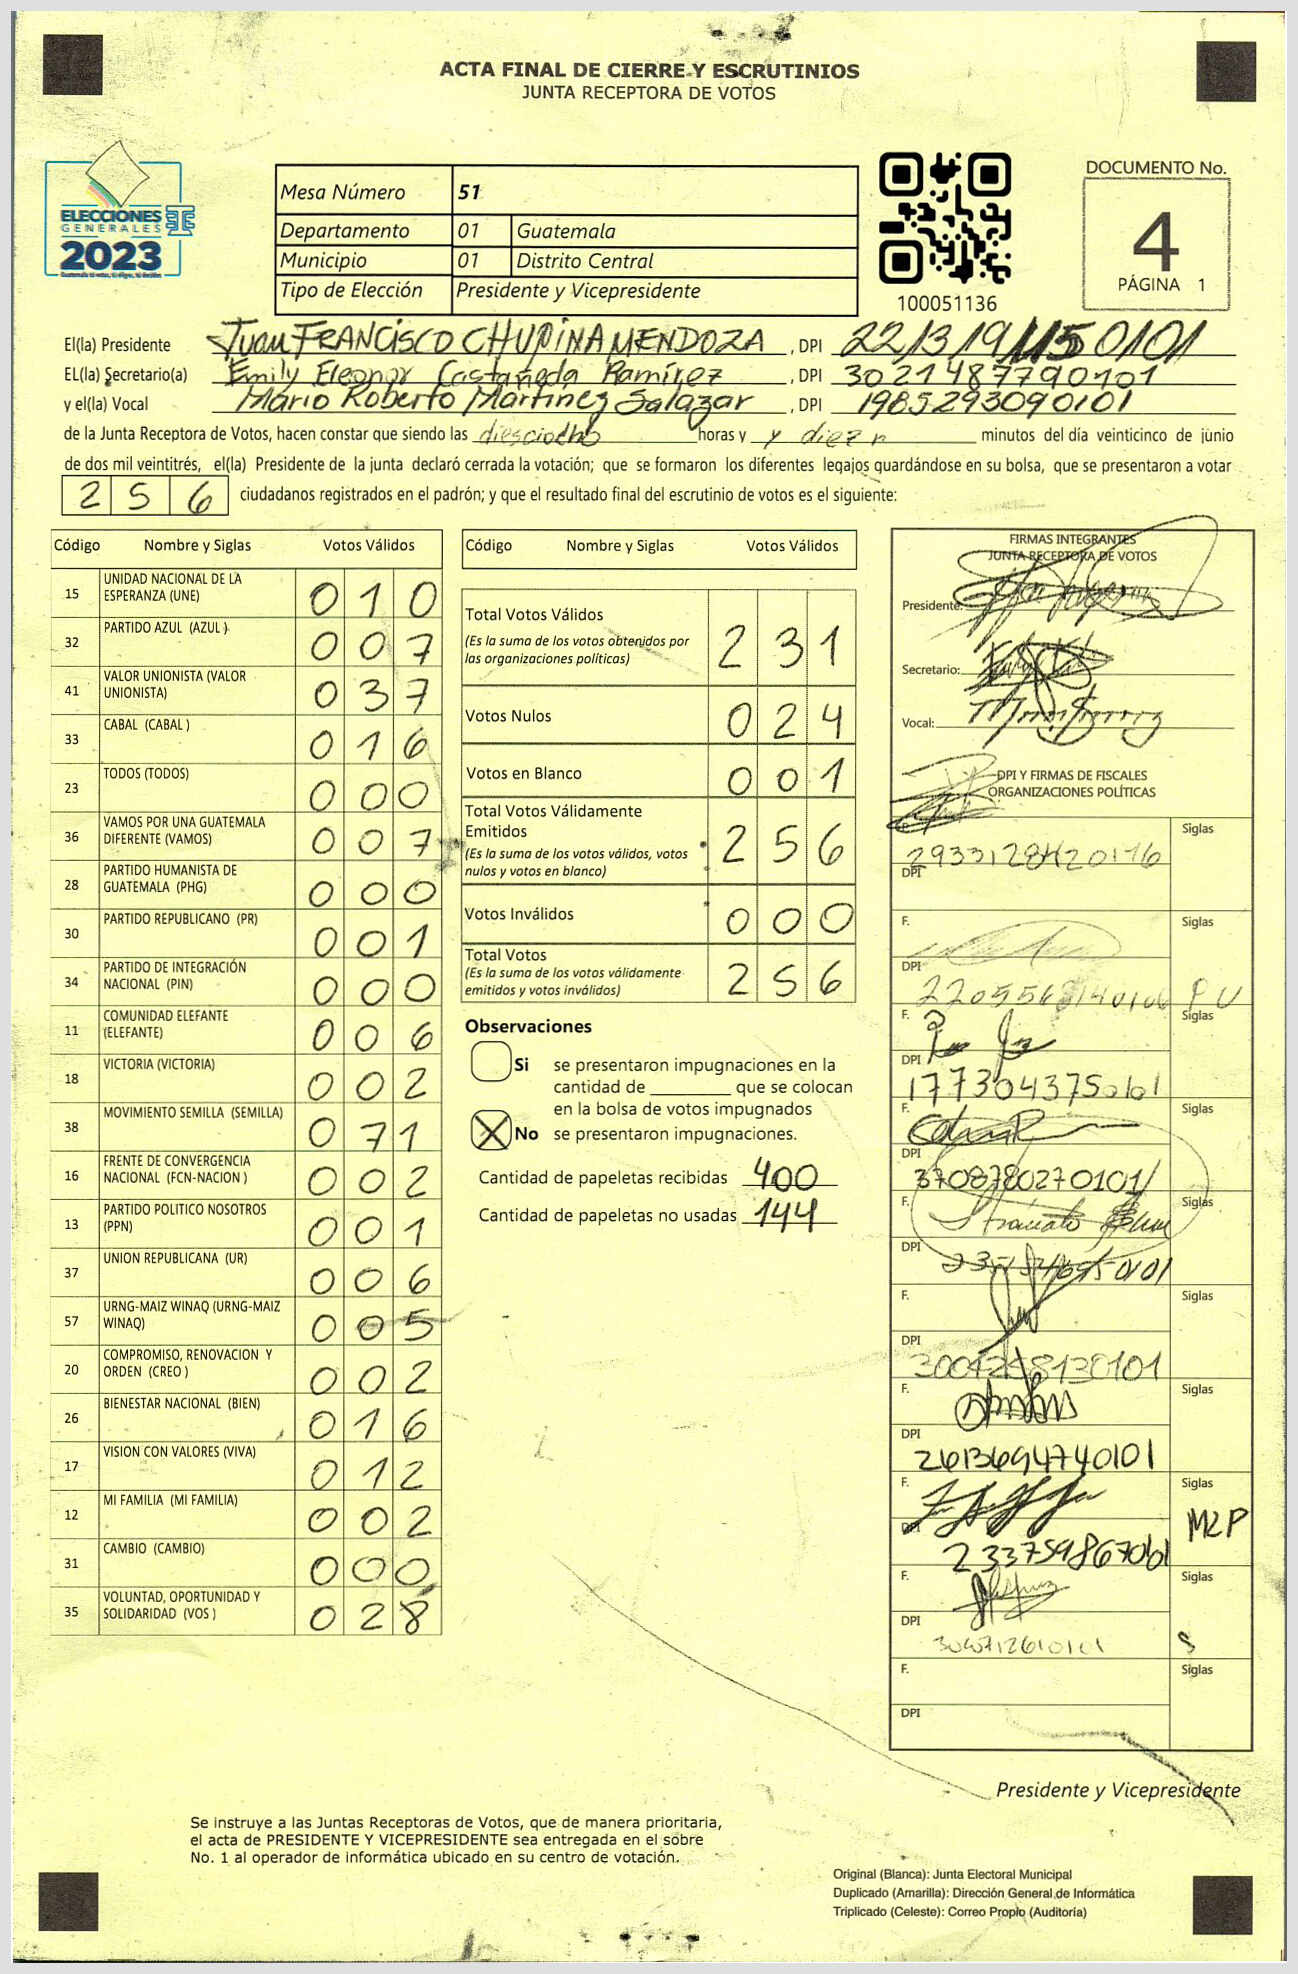 ACTA FINAL DE CIERRE Y ESCRUTINIOS
JUNTA RECEPTORA DE VOTOS
ELECCIONES
GENERALES
2023
Mesa Número 51
Departamento 01 Guatemala
Municipio 01 Distrito Central
Tipo de Elección Presidente y Vicepresidente
100051136
DOCUMENTO No.
4
PÁGINA 1
El(la) Presidente Juan FRANCISCO CHUPINA MENDOZA , DPI
EL(la) Secretario(a) Emily Eleonor Castañeda Ramírez , DPI 3021487790101
y el(la) Vocal Mario Roberto Martínez Salazar , DPI 1985293090101
de la Junta Receptora de Votos, hacen constar que siendo las diesciocho horas y y diez minutos del día veinticinco de junio
de dos mil veintitrés, el(la) Presidente de la junta declaró cerrada la votación; que se formaron los diferentes legajos guardándose en su bolsa, que se presentaron a votar
256 ciudadanos registrados en el padrón; y que el resultado final del escrutinio de votos es el siguiente:
Código Nombre y Siglas Votos Válidos
15 UNIDAD NACIONAL DE LA ESPERANZA (UNE) 010
32 PARTIDO AZUL (AZUL ) 007
41 VALOR UNIONISTA (VALOR UNIONISTA) 037
33 CABAL (CABAL ) 016
23 TODOS (TODOS) 000
36 VAMOS POR UNA GUATEMALA DIFERENTE (VAMOS) 007
28 PARTIDO HUMANISTA DE GUATEMALA (PHG) 000
30 PARTIDO REPUBLICANO (PR) 001
34 PARTIDO DE INTEGRACIÓN NACIONAL (PIN) 000
11 COMUNIDAD ELEFANTE (ELEFANTE) 006
18 VICTORIA (VICTORIA) 002
38 MOVIMIENTO SEMILLA (SEMILLA) 071
16 FRENTE DE CONVERGENCIA NACIONAL (FCN-NACION ) 002
13 PARTIDO POLITICO NOSOTROS (PPN) 001
37 UNION REPUBLICANA (UR) 006
57 URNG-MAIZ WINAQ (URNG-MAIZ WINAQ) 005
20 COMPROMISO, RENOVACION Y ORDEN (CREO ) 002
26 BIENESTAR NACIONAL (BIEN) 016
17 VISION CON VALORES (VIVA) 012
12 MI FAMILIA (MI FAMILIA) 002
31 CAMBIO (CAMBIO) 000
35 VOLUNTAD, OPORTUNIDAD Y SOLIDARIDAD (VOS ) 028
Código Nombre y Siglas Votos Válidos
Total Votos Válidos 231
(Es la suma de los votos obtenidos por
las organizaciones políticas)
Votos Nulos 024
Votos en Blanco 001
Total Votos Válidamente
Emitidos 256
(Es la suma de los votos válidos, votos
nulos y votos en blanco)
Votos Inválidos 000
Total Votos 256
(Es la suma de los votos válidamente
emitidos y votos inválidos)
Observaciones
Si se presentaron impugnaciones en la
cantidad de ________ que se colocan
en la bolsa de votos impugnados
X No se presentaron impugnaciones.
Cantidad de papeletas recibidas 400
Cantidad de papeletas no usadas 144
FIRMAS INTEGRANTES
JUNTA RECEPTORA DE VOTOS
Presidente:
Secretario:
Vocal:
DPI Y FIRMAS DE FISCALES
ORGANIZACIONES POLÍTICAS
Siglas
DPI
F. Siglas
DPI PU
F. Siglas
DPI 1773043750101
F. Siglas
DPI 3708780270101
F. Siglas
DPI
F. Siglas
DPI
F. Siglas
DPI 2613694740101
F. Siglas
DPI MLP
F. Siglas
DPI
F. Siglas
DPI
Presidente y Vicepresidente
Se instruye a las Juntas Receptoras de Votos, que de manera prioritaria,
el acta de PRESIDENTE Y VICEPRESIDENTE sea entregada en el sobre
No. 1 al operador de informática ubicado en su centro de votación.
Original (Blanca): Junta Electoral Municipal
Duplicado (Amarilla): Dirección General de Informática
Triplicado (Celeste): Correo Propio (Auditoría)